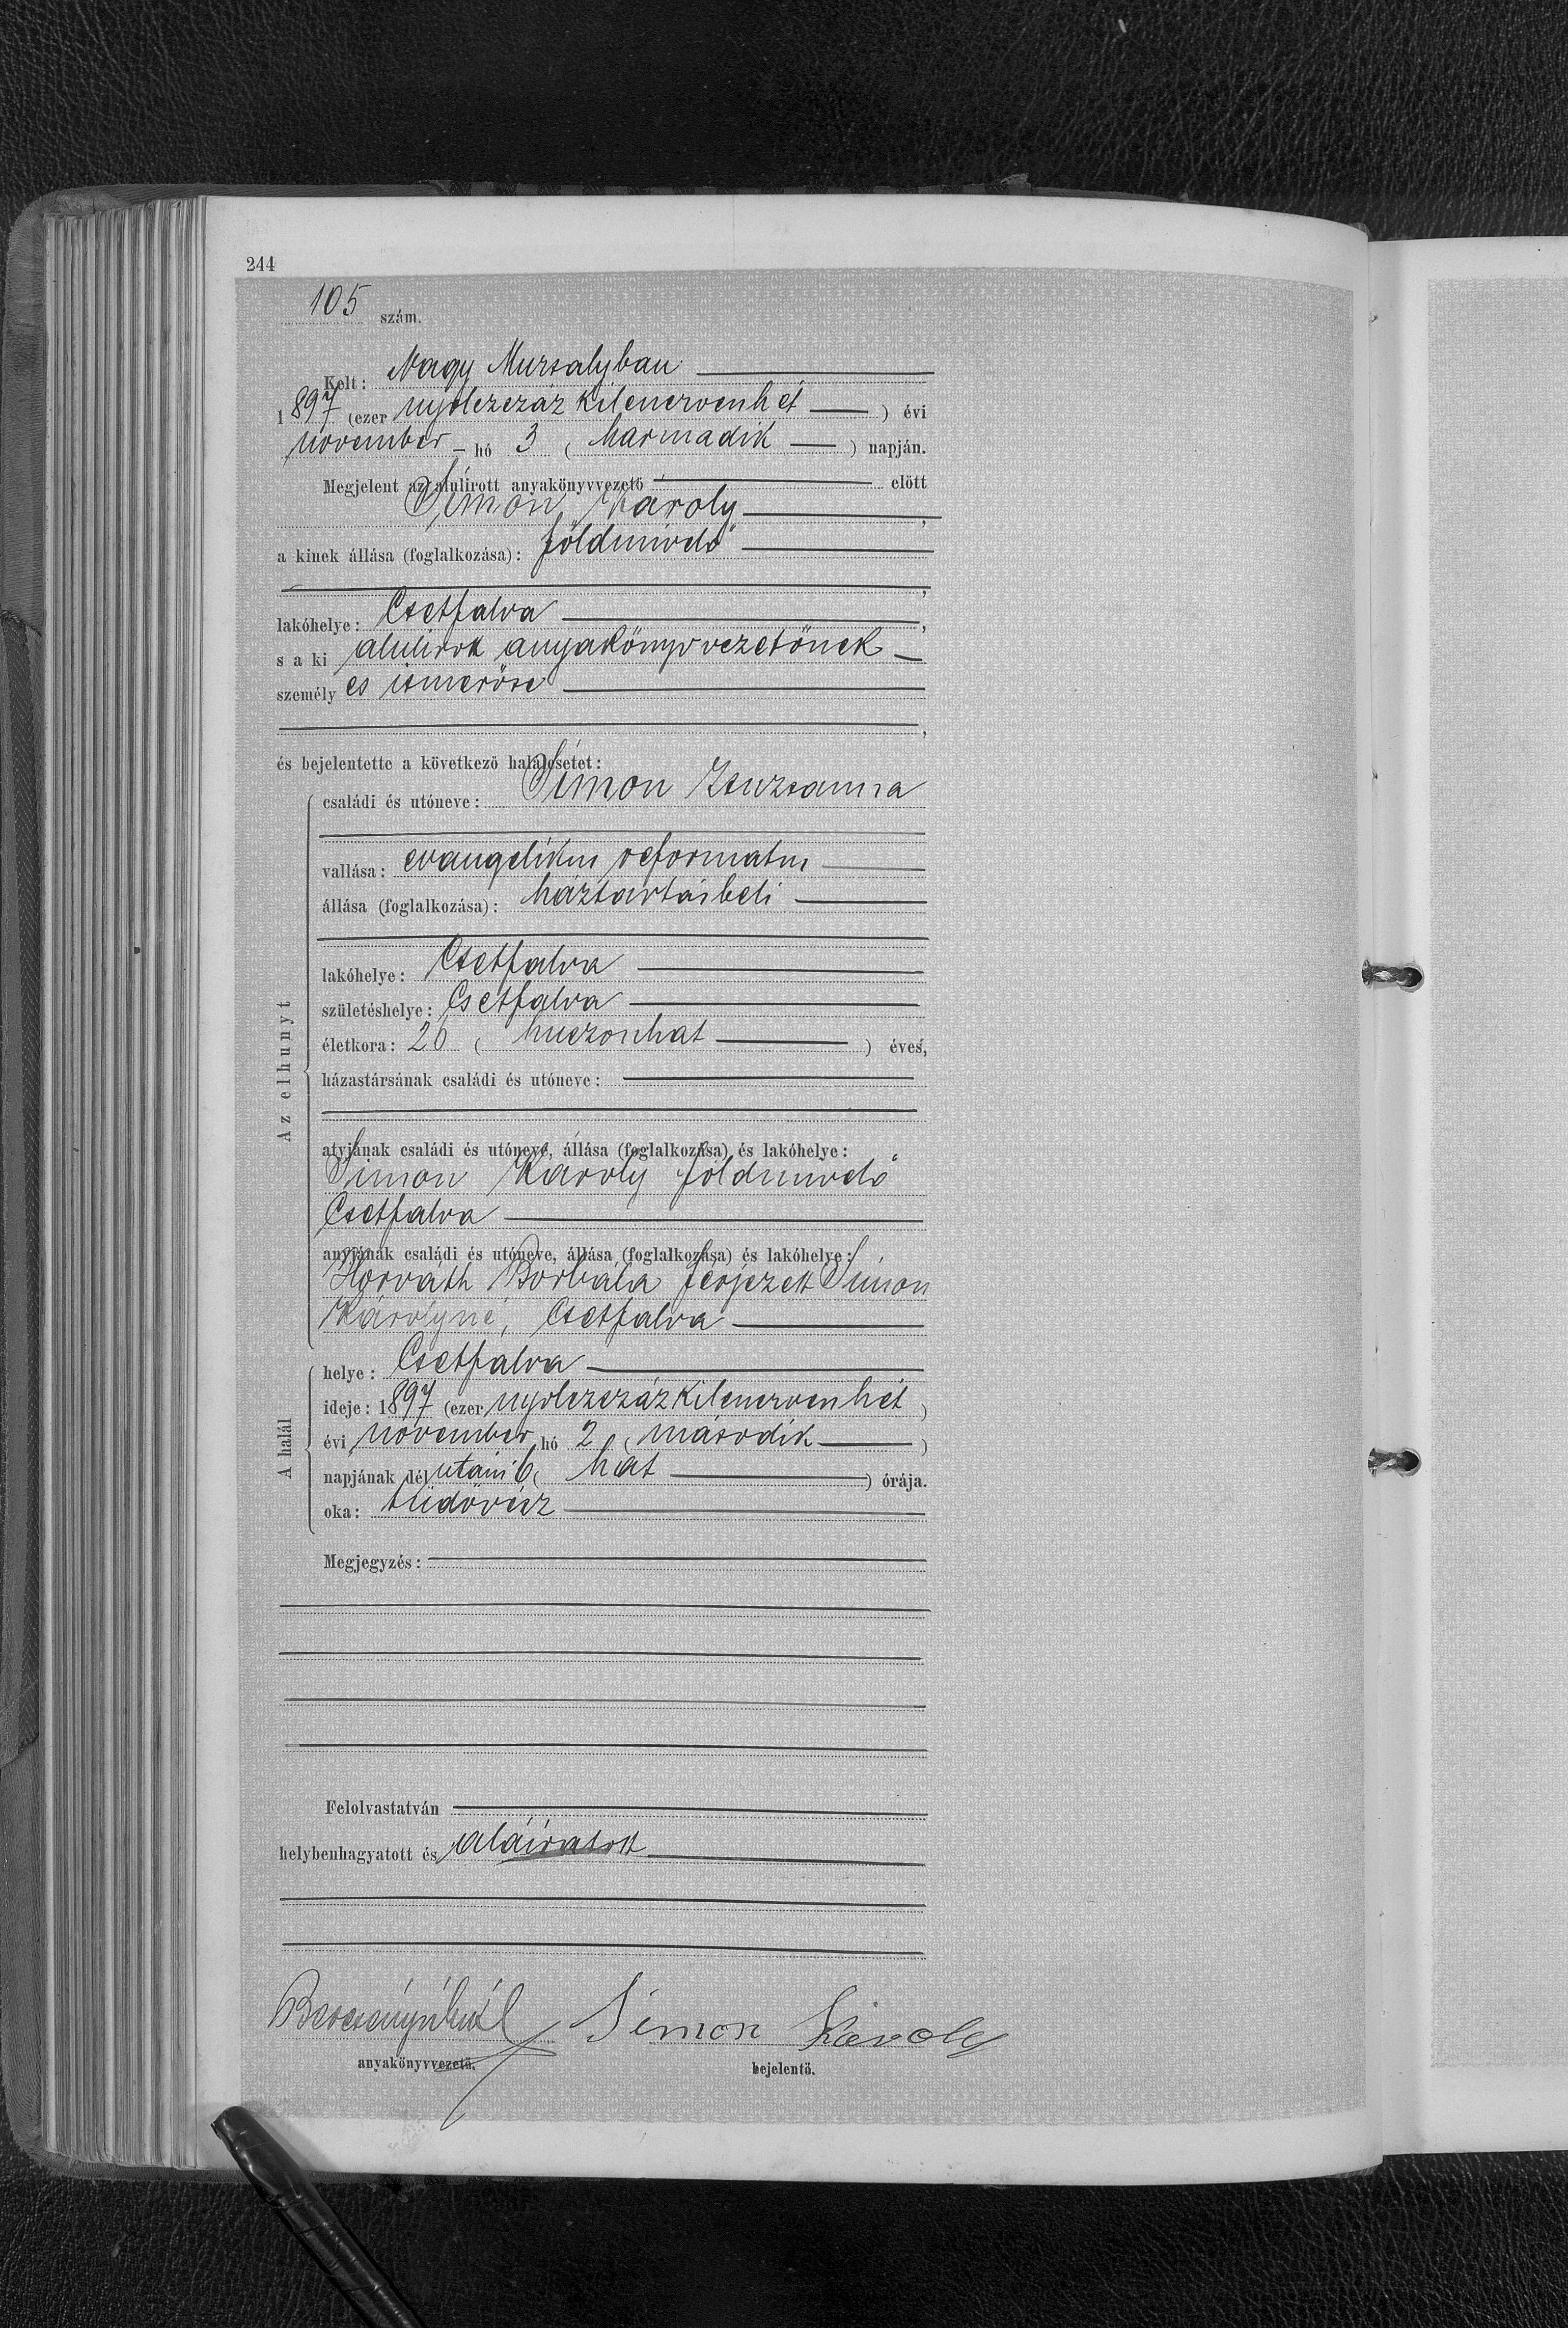 244
105 szám.
Kelt: Nagy Muzsalyban
1897 (ezer nyolczszáz kilenczvenhét) évi
november hó 3 (harmadik) napján.
Megjelent az alulirott anyakönyvvezető előtt
Simon Károly,
a kinek állása (foglalkozása): földmívelő
,
lakóhelye: Csetfalva,
s a ki alulirott anyakönyvvezetőnek
személyes ismerőse
,
és bejelentette a következő halálesetet:
Az elhunyt
családi és utóneve: Simon Zsuzsanna
vallása: evangelikus reformatus
állása (foglalkozása): háztartásbeli
lakóhelye: Csetfalva
születéshelye: Csetfalva
életkora: 26 (huszonhat) éves,
házastársának családi és utóneve:
atyjának családi és utóneve, állása (foglalkozása) és lakóhelye:
Simon Károly földmívelő
Csetfalva
anyjának családi és utóneve, állása (foglalkozása) és lakóhelye:
Horváth Borbála férjezett Simon
Károlyné, Csetfalva
A halál
helye: Csetfalva
ideje: 1897 (ezer nyolczszáz kilenczvenhét)
évi november hó 2 (második)
napjának dél utáni 6 (hat) órája.
oka: tüdővész
Megjegyzés:
Felolvastatván
helybenhagyatott és aláiratott
Simon Károly
anyakönyvvezető. bejelentő.